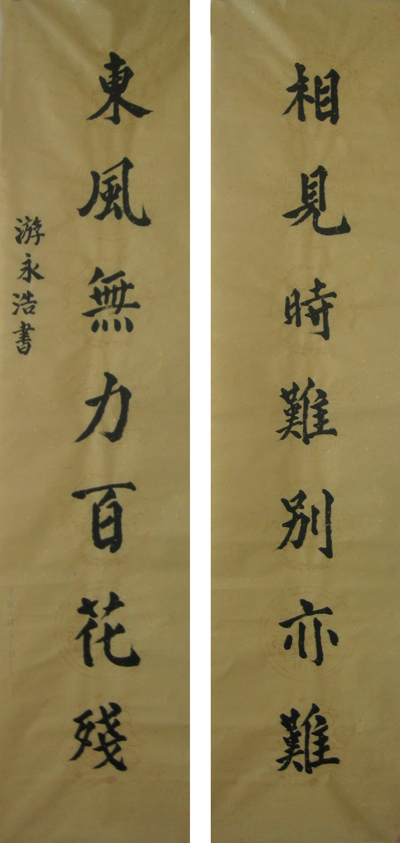 相見時難別亦難
東風無力百花殘
游永浩書